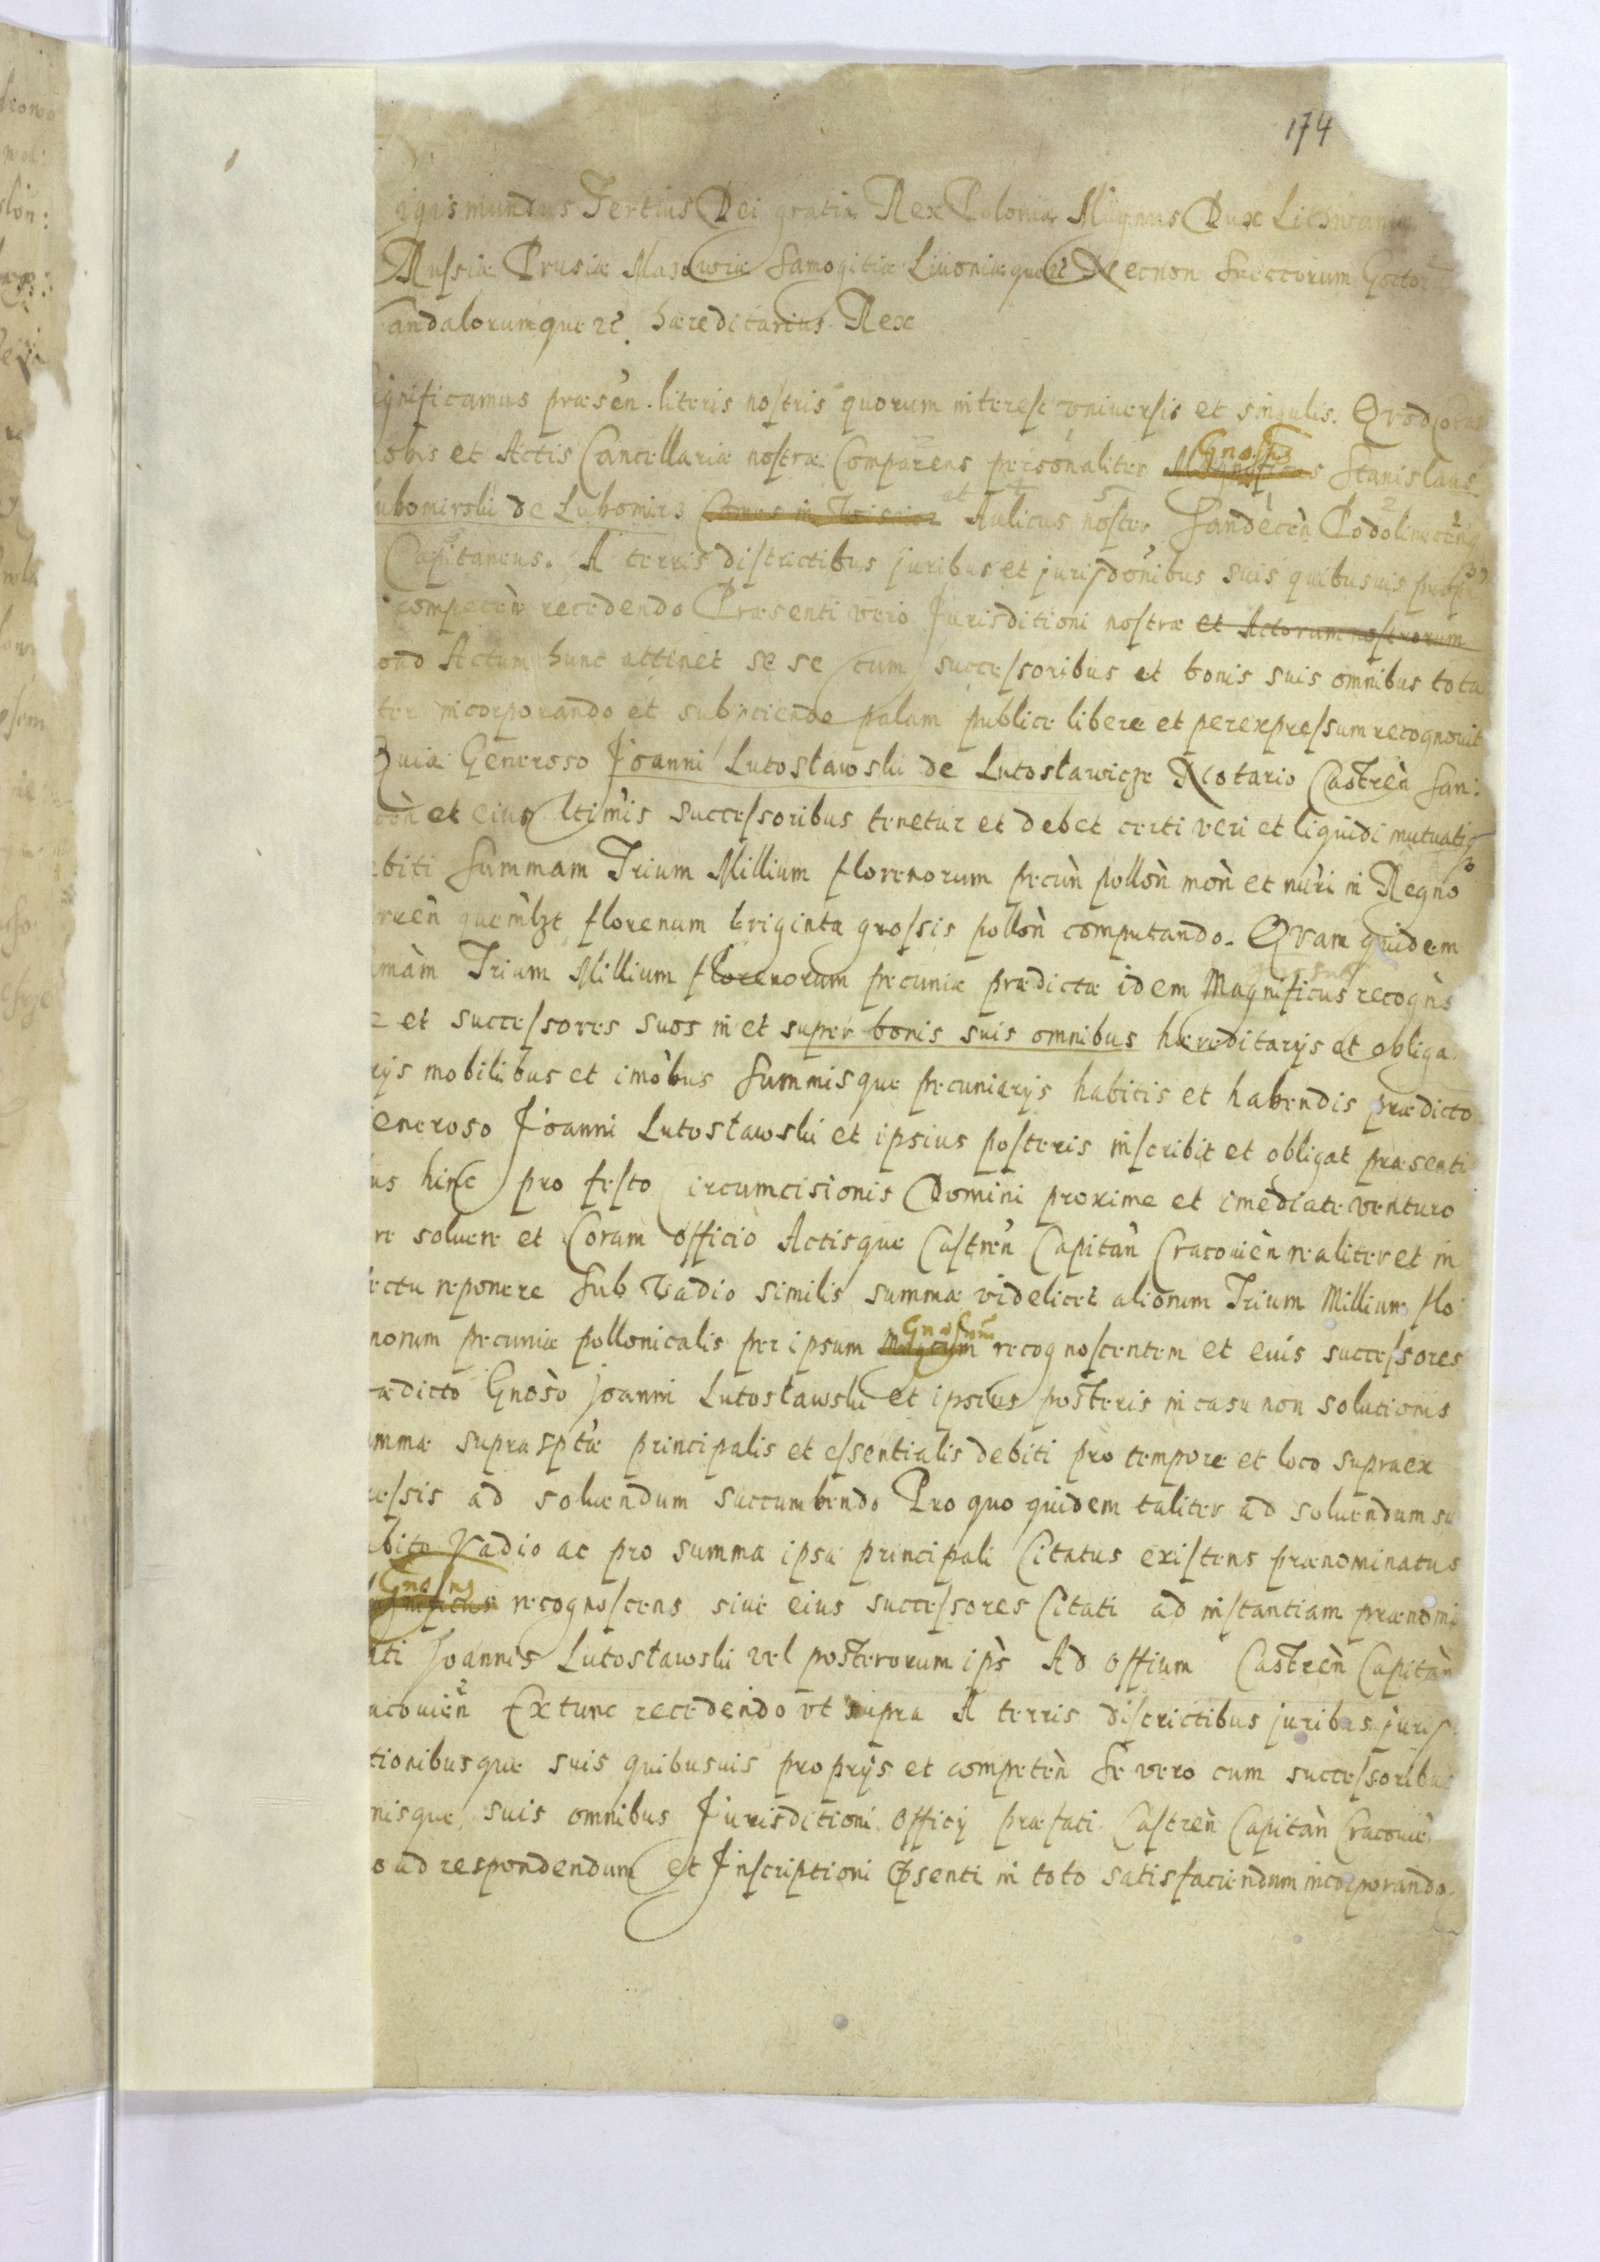 174
igismundus Tertius Dei gratia Rex Poloniæ Magnus Dux Lithuaniæ
Russiæ Prusiæ Masowiæ Samogitiæ Livoniæque etc Necnon Suecorum Gottor
andalorumque etc. hæreditarius Rex
ignificamus præsen. literis nostris quorum interest vniversis et singulis. Qvod coram
obis et Actis Cancellariæ nostræ Comparens personaliter Magnificus Gnosus Stanislaus
ubomirski de Lubomirz Comes in Wisnicz et Aulicus noster Sandecen Podolinecen
Capitaneus. A terris districtibus juribus et jurisdonibus suis quibusuis propr
competen recedendo Præsenti vero Jurisditioni nostræ et Actorum nostrorum
oad Actum hunc attinet se se cum successoribus et bonis suis omnibus tota
ter incorporando et subijciendo palam publice libere et perexpressum recognovit
Quia Generoso Joanni Lutosławski de Lutosławicze Notario Castren San:
con et eius ltimis successoribus tenetur et debet certi veri et liquidi mutuati
ebiti Summam Trium Millium florenorum pecun pollon mon et nuri in Regno
rren quemlzt florenum triginta grossis pollon computando. Qvam quidem
mam Trium Millium florenorum pecuniæ prædictæ idem Magnificus recogns
e et successores suos in et super bonis suis omnibus hæreditarijs et obliga
rijs mobilibus et imobus Summisque pecuniarijs habitis et habendis prædicto
eneroso Joanni Lutosławski et ipsius posteris inscribit et obligat præsenti
us hinc pro festo Circumcisionis Domini proxime et imediate venturo
re soluere et Coram officio Actisque Castren Capitan Cracouien realiter et in
ectu reponere Sub Vadio similis summæ videlicet aliorum Trium Millium flo:
norum pecuniæ pollonicalis per ipsum Magcum Gnosum recognoscentem et eius successores
ædicto Gnoso Joanni Lutosławski et ipsius posteris in casu non solutionis
mmæ suprasptæ principalis et essentialis debiti pro tempore et loco supraex
ressis ad soluendum succumbendo Pro quo quidem taliter ad soluendum su
bito Vadio ac pro summa ipsa principali Citatus existens prænominatus
agnificus Gnosus recognoscens siue eius successores Citati ad instantiam prænomi
ati Joannis Lutosławski vel posterorum ips Ad offium Castren Capitan
acouien Extunc recedendo vt supra A terris districtibus juribus juris
tionibusque suis quibusuis proprijs et competen Se vero cum successoribus
nisque suis omnibus Jurisditioni officij præfati Castren Capitan Cracouien
oad respondendum et Inscriptioni psenti in toto satisfaciendum incorporando